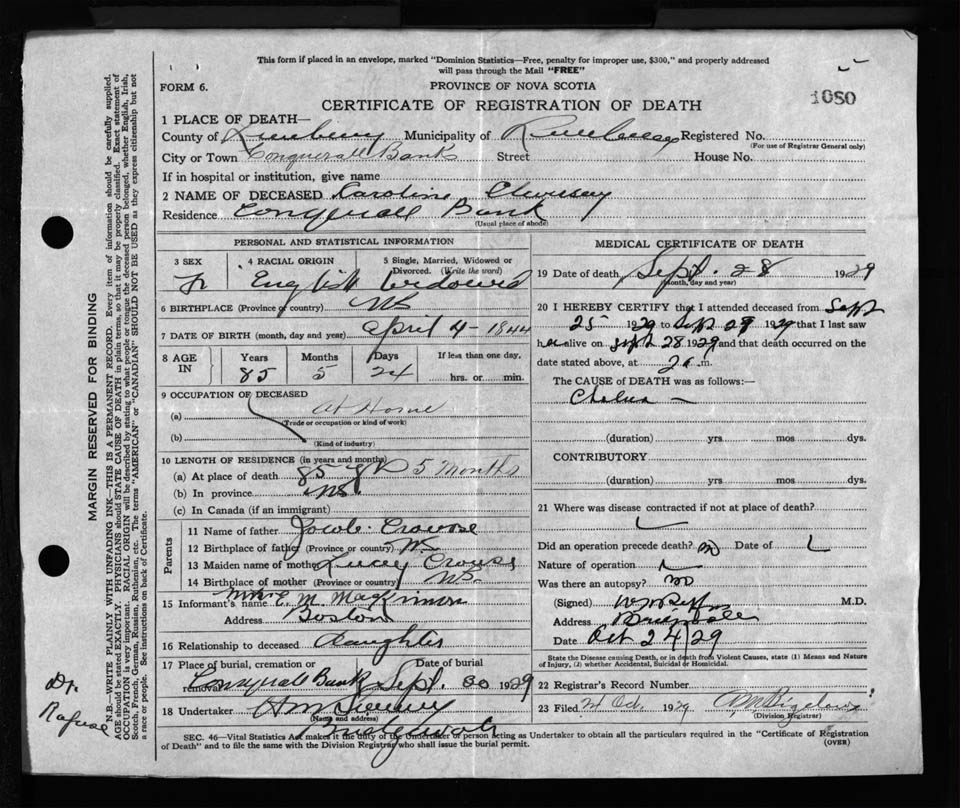 This form if placed in an envelope, marked "Dominion Statistics—Free, penalty for improper use, $300," and properly addressed
will pass through the Mail "FREE"
FORM 6.
PROVINCE OF NOVA SCOTIA
1080
CERTIFICATE OF REGISTRATION OF DEATH
1 PLACE OF DEATH—
County of Lunenburg Municipality of Registered No.
(For use of Registrar General only)
City or Town Conquerall Bank Street House No.
If in hospital or institution, give name
2 NAME OF DECEASED Caroline
Residence Conquerall Bank
(Usual place of abode)
PERSONAL AND STATISTICAL INFORMATION
3 SEX 4 RACIAL ORIGIN 5 Single, Married, Widowed or Divorced. (Write the word)
F English Widowed
6 BIRTHPLACE (Province or country) NS
7 DATE OF BIRTH (month, day and year) April 4 - 1844
8 AGE IN Years Months Days If less than one day,
85 5 24 hrs. or min.
9 OCCUPATION OF DECEASED
(a) At Home
(Trade or occupation or kind of work)
(b)
(Kind of industry)
10 LENGTH OF RESIDENCE (in years and months)
(a) At place of death 85 yrs 5 Months
(b) In province NS
(c) In Canada (if an immigrant)
Parents
11 Name of father Jacob Crouse
12 Birthplace of father (Province or country) NS
13 Maiden name of mother Lucey Crouse
14 Birthplace of mother (Province or country) NS
15 Informant's name E. M. MacKinnon
Address Boston
16 Relationship to deceased Daughter
17 Place of burial, cremation or removal Date of burial
Conquerall Bank Sept. 30 1929
18 Undertaker
(Name and address)
Bridgewater
MEDICAL CERTIFICATE OF DEATH
19 Date of death, Sept. 28 1929
(month, day and year)
20 I HEREBY CERTIFY that I attended deceased from Sept
25 1929 to Sept 29 1929 that I last saw
her alive on Sept 28 1929 and that death occurred on the
date stated above, at m.
The CAUSE of DEATH was as follows:—
(duration) yrs mos dys.
CONTRIBUTORY
(duration) yrs. mos. dys.
21 Where was disease contracted if not at place of death?
Did an operation precede death? no Date of
Nature of operation
Was there an autopsy? no
(Signed) M.D.
Address
Date Oct 24/29
State the Disease causing Death, or in death from Violent Causes, state (1) Means and Nature
of Injury, (2) whether Accidental, Suicidal or Homicidal.
22 Registrar's Record Number
23 Filed 24 Oct, 1929
(Division Registrar)
SEC. 46—Vital Statistics Act makes it the duty of the Undertaker or person acting as Undertaker to obtain all the particulars required in the "Certificate of Registration
of Death" and to file the same with the Division Registrar who shall issue the burial permit.
(OVER)
MARGIN RESERVED FOR BINDING
N.B.—WRITE PLAINLY WITH UNFADING INK—THIS IS A PERMANENT RECORD. Every item of information should be carefully supplied.
AGE should be stated EXACTLY. PHYSICIANS should STATE CAUSE OF DEATH in plain terms, so that it may be properly classified. Exact statement of
OCCUPATION is very important. RACIAL ORIGIN will be described by stating to what people or tongue the deceased person belonged, whether English, Irish,
Scotch, French, German, Russian, Ruthenian, etc. The terms "AMERICAN" or "CANADIAN" SHOULD NOT BE USED as they express citizenship but not
a race or people. See instructions on back of Certificate.
Dr.
Rafuse